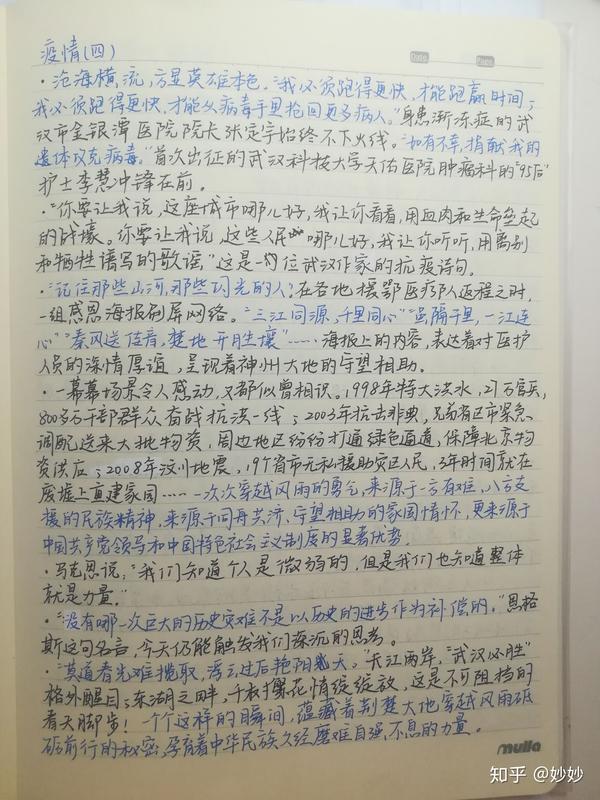 疫情(四)
·沧海横流,方显英雄本色。"我必须跑得更快,才能跑赢时间;
我必须跑得更快,才能从病毒手里抢回更多病人。"身患渐冻症的武
汉市金银潭医院院长张定宇始终不下火线。"如有不幸,捐献我的
遗体攻克病毒。"首次出征的武汉科技大学天佑医院肿瘤科的"95后"
护士李慧冲锋在前。
·"你要让我说,这座城市哪儿好,我让你看看,用血肉和生命垒起
的战壕。你要让我说,这些人民哪儿好,我让你听听,用离别
和牺牲谱写的歌谣,"这是一位武汉作家的抗疫诗句。
·"记住那些山河,那些闪光的人!在各地援鄂医疗队返程之时,
一组感恩海报刷屏网络。"三江同源,千里同心""虽隔千里,一江连
心""秦风送佳音,楚地开胜壤"……海报上的内容,表达着对医护
人员的深情厚谊,呈现着神州大地的守望相助。
·一幕幕场景令人感动,又都似曾相识。1998年特大洪水,27万官兵,
800多万干部群众奋战抗洪一线;2003年抗击非典,兄弟省区市紧急
调配送来大批物资,周边地区纷纷打通绿色通道,保障北京物
资供应;2008年汶川地震,19个省市无私援助灾区人民,3年时间就在
废墟上重建家园……一次次穿越风雨的勇气,来源于一方有难,八方支
援的民族精神,来源于同舟共济、守望相助的家国情怀,更来源于
中国共产党领导和中国特色社会主义制度的显著优势。
·马克思说:"我们知道个人是微弱的,但是我们也知道整体
就是力量。"
·"没有哪一次巨大的历史灾难不是以历史的进步作为补偿的。"恩格
斯这句名言,今天仍能触发我们深沉的思考。
·"莫道春光难揽取,浮云过后艳阳天。"长江两岸,"武汉必胜"
格外醒目;东湖之畔,千树樱花情绽放,这是不可阻挡的
春天脚步!一个个这样的瞬间,蕴藏着荆楚大地穿越风雨砥
砺前行的秘密,孕育着中华民族久经磨难自强不息的力量。
mulla
知乎 @妙妙